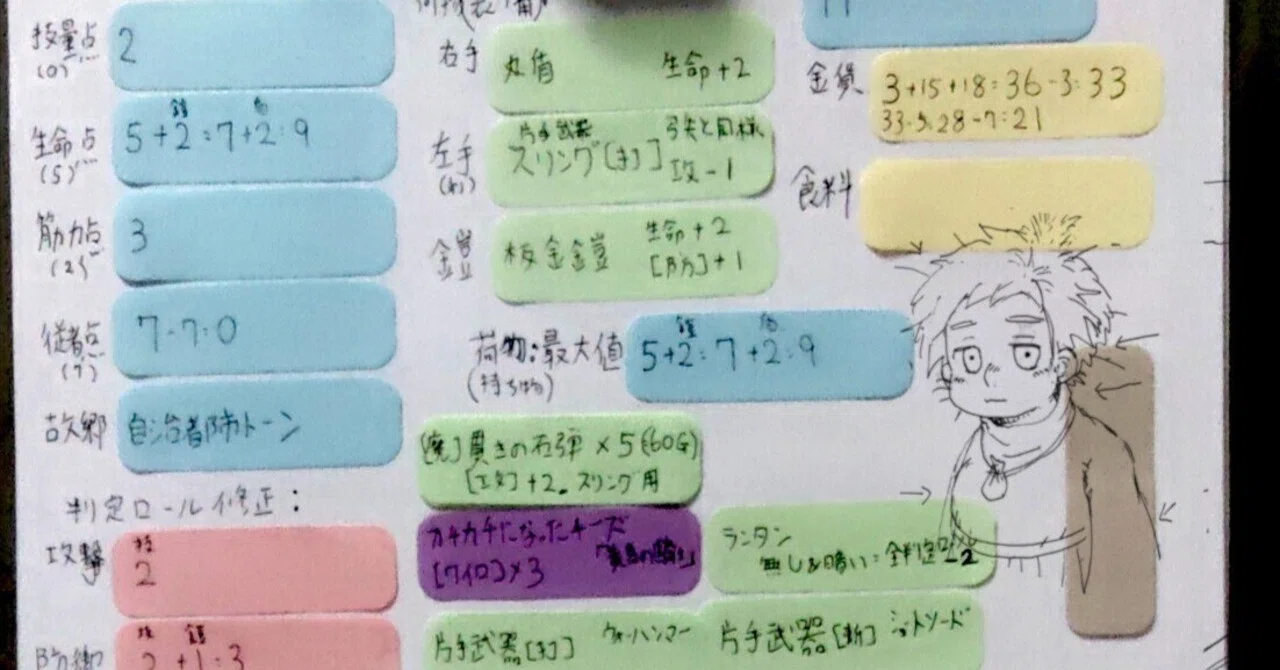 技量点
(0)
2
生命点
(5)
鎧 盾
5+2=7+2=9
筋力点
(2)
3
従者点
(7)
7-7=0
故郷
自治都市トーン
判定ロール修正:
攻撃
技
2
防御
技 鎧
2+1=3
右手
丸盾 生命+2
左手
片手武器 弓矢と同様
スリング[打] 攻-1
鎧
板金鎧 生命+2
[防]+1
荷物:最大値
(持ち物)
鎧 盾
5+2=7+2=9
貫きの石弾×5(60G)
[攻]+2。スリング用
カチカチになったチーズ
[ワイロ]×3
ランタン
無しを暗い:全判定ロ-2
片手武器[打] ウォーハンマー
片手武器[斬] ショートソード
11
金貨
3+15+18=36-3=33
33-5=28-7=21
食料